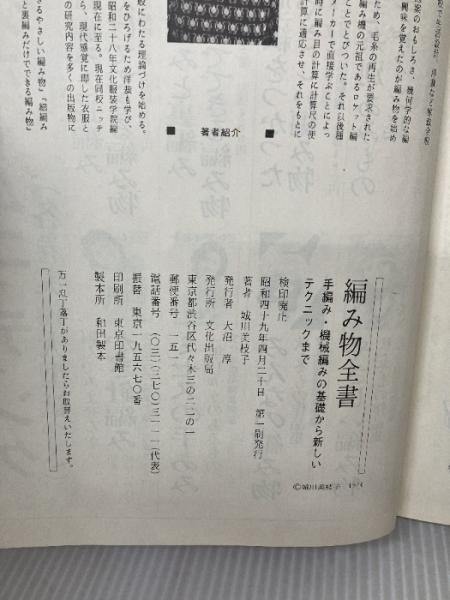 案のおもしろさ、幾何学的な編
興味を覚えたのが編み物を始め
ため、毛糸の再生が要求された
編み機の元祖であるロケット編
ことでとびついた。それ以後種
メーカーで直接学ぶことによっ
時に編み目の計算に計算尺の使
計算に適応させ、それをもとに
般にわたる理論づけを始める。
をひろげるため洋裁も学び、
昭和二十八年文化服装学院編
現在に至る。現在同校ニッテ
ら、現代感覚に即した衣服と
の研究内容を多くの出版物に
るやさしい編み物」「棒編み
と裏編みだけでできる編み物」
■ 著者紹介 ■
編み物全書
手編み・機械編みの基礎から新しい
テクニックまで
検印廃止
昭和四十九年四月二十日 第一刷発行
著者 城川美枝子
発行者 大沼 淳
発行所 文化出版局
東京都渋谷区代々木三の二二の一
郵便番号 一五一
電話番号 (〇三)三七〇ー三一一一(代表)
振替 東京一九五六七〇番
印刷所 東京印書館
製本所 和田製本
万一乱丁落丁がありましたらお取替えいたします。
©城川美枝子 1974